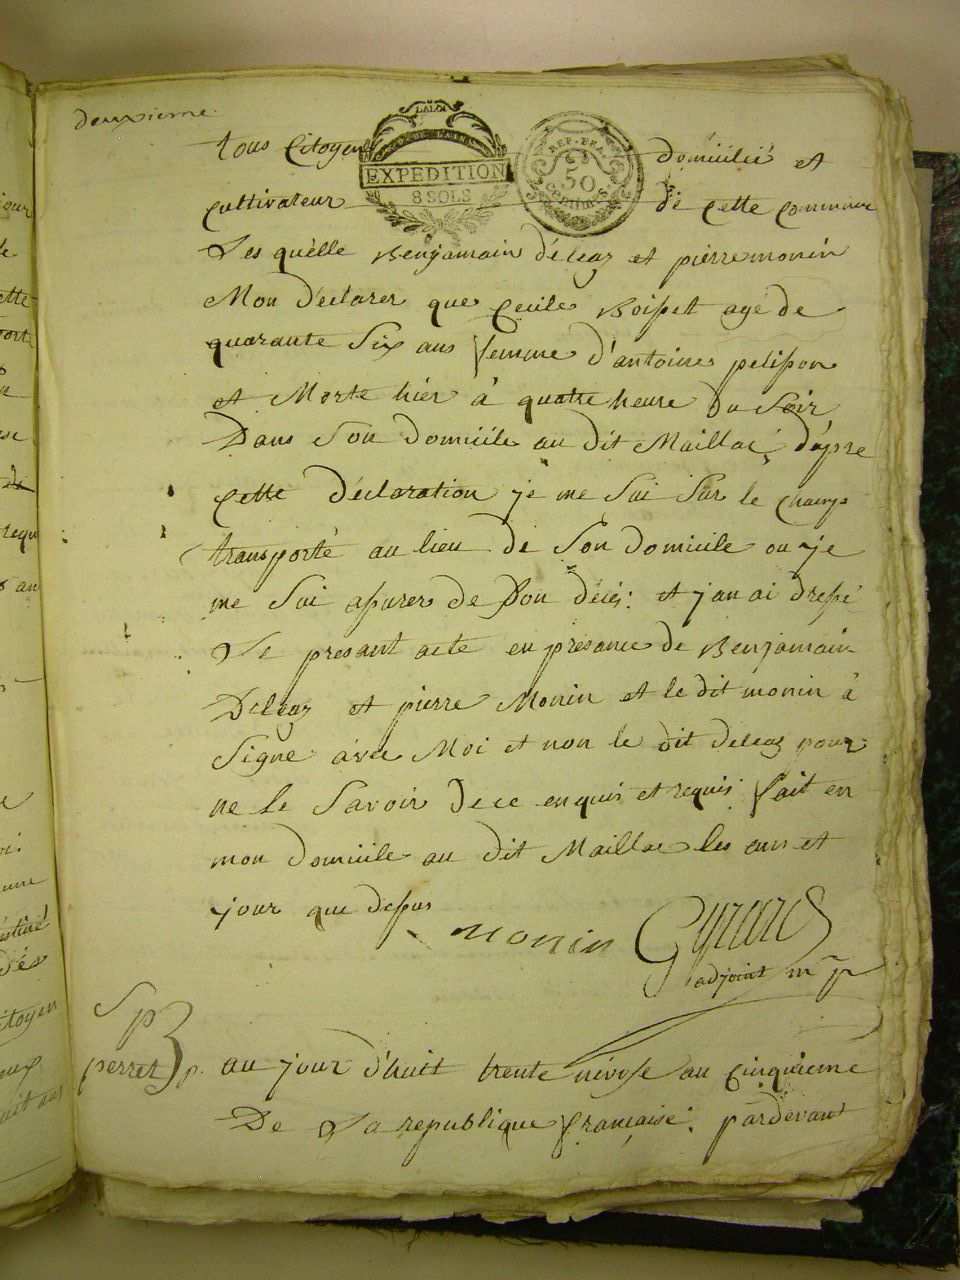 deuxieme
LA LOI
EXPEDITION
8 SOLS
REP. FRA.
50
centimes
tous Citoyen domicilié et
cultivateur de cette commune
Les quèlle Benjamain déleaz et pierre monin
Mon déclarer que Cecile Boisset age de
quarante Six ans femme d'antoine pelisson
et Morte hier à quatre heure du Soir
Dans Son domicile au dit Maillac, dapre
Cette déclaration je me Sui Sur le champ
transporté au lieu de Son domicile ou je
me Sui assurer de Son décés: et j an ai dressé
Le presant acte en presance de Benjamain
Deleaz et pierre Monin et le dit monin à
Signe avec Moi et non le dit deleaz pour
ne le Savoir de ce enquis et requis fait en
mon domicile au dit Maillac les ans et
jour que dessus
Monin
adjoint
perret
au jour d'huit trente nivose an cinquieme
De La republique française: pardevant